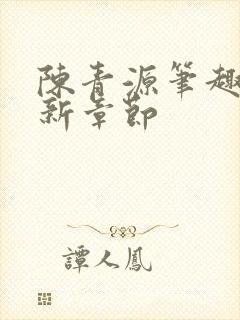 陳青源筆趣
新章節
譚人鳳